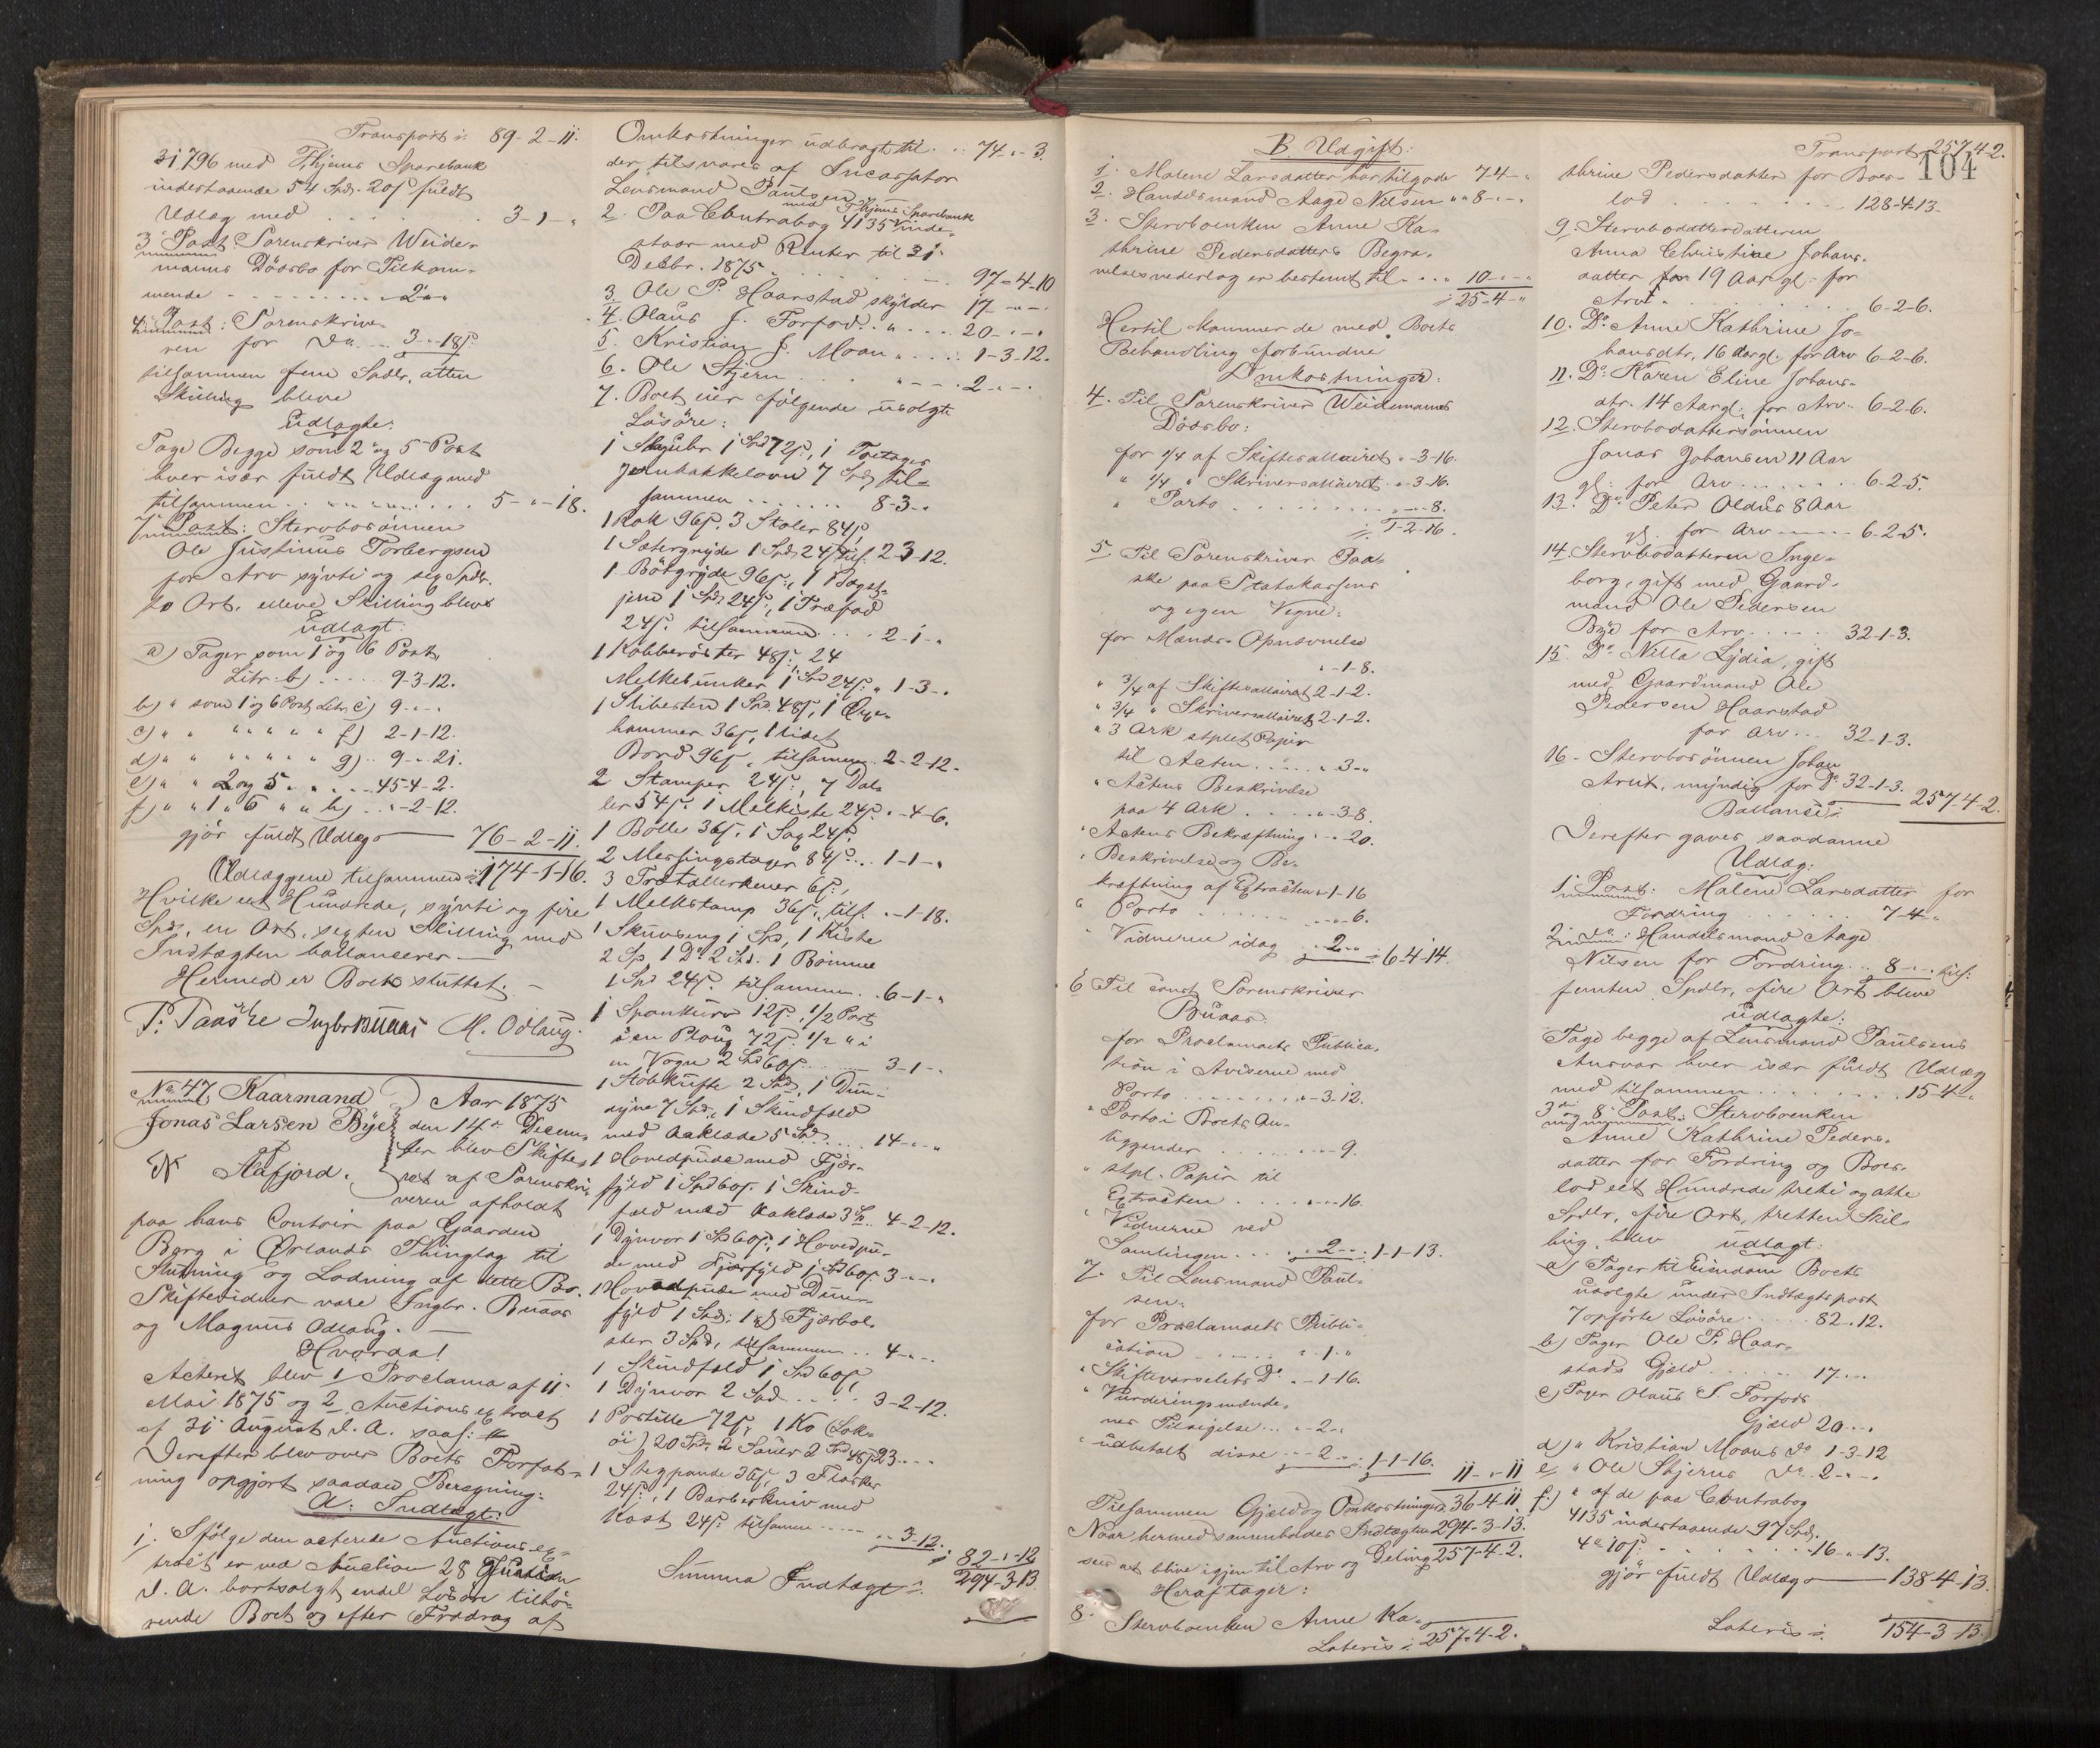 Transport 89-2-11.
31796 med Thjems Sparebank
indestaaende 54 Spd. 20 s fuldt
Udlæg med . . . . . 3-1-"
3 Post. Sorenskriver Weide-
manns Dödsbo for Tilkom-
mende - - - - - 2 " "
4 Post: Sorenskrive-
ren for Do . . . 3 - 18 s.
tilsammen fem Spdlr, atten
Skilling bleve
Udlagte:
Tage Begge som 2 og 5 Post
hver især fuldt Udlæg med
tilsammen . . . . . . 5-"-18.
7 Post: Stervbosönnen
Ole Justinus Torbergsen
for Arv sytti og sex Spdlr.
to Ort, elleve Skilling blev
Udlagt:
a) Tager som 1 og 6 Post,
Litr. b) . . . . 9-3-12.
b) " som 1 og 6 Post Litr. c) 9 . - "
c) " " " " " " f) 2-1-12.
d) " " " " " " g) . 9 - " 21.
e) " " 2 og 5 . . . . 45-4-2.
f) " " 1 " 6 " " h) . . "-2-12.
gjör fuldt Udlæg 76-2-11.
Udlæggene tilsammen 174-1-16.
Hvilke eet Hundrede, sytti og fire
Spd., en Ort, sexten Skilling med
Indtægten ballancerer.
Hermed er Boet sluttet. -
P. Paaske Ingbr Buaas M. Odlaug.
No. 47 Kaarmand
Jonas Larsen Bye
Stafjord.
Aar 1875
den 14de Decem-
ber blev Skifte-
ret af Sorenskri-
veren afholdt
paa hans Contoir paa Gaarden
Borg i Ørlands Thinglag til
Slutning og Lodning af dette Bo.
Skiftevidner vare Ingbr. Buaas
og Magnus Odlaug. -
Hvorda!
Acteret blev 1 Proclama af 11
Mai 1875 og 2 Auctionsextract
af 31 August d. A. saal:
Derefter blev over Boets Forfat-
ning opgjort saadan Beregning:
A: Indtægt:
1. Ifölge den acterede Auctionsex-
tract er ved Auction 28
d. A. bortsolgt endel Lösöre tilhö-
rende Boet og efter Fradrag af
Omkostninger udbragt til . . 74 - " 3.
der tilsvares af Incassator
Lensmand Paulsen
med Thjems Sparebank
2. Paa Contrabog 4135 inde-
staar med Renter til 31
Decbr. 1875 . . . . . . 97-4-10
3. Ole P. Haarstad skylder 17 - " - "
4. Olaus J. Forfod . . " . . . 20 - " - "
5. Kristian J. Moan " . . . . 1-3-12.
6. Ole Stjern . . . " - - - . 2 - " - "
7. Boet eier fölgende usolgte
Lösöre:
1 Slaguhr 1 Spd 72 s, 1 Toetages
Jernkakkelovn 7 Spd til-
sammen . . . . . . 8-3- "
1 Rok 96 s, 3 Stoler 84 s,
1 Sætergryde 1 Spd 24 s tils. 2-3-12.
1 Bötgryde 96 s, 1 Bagst-
jern 1 Spd 24 s, 1 Træfad
24 s. tilsammen . . . 2-1- "
1 Kobberöster 48 s, 24
Melkebunker 1 Spd 24 s. " 1-3- "
1 Slibesten 1 Spd. 48 s, 1 Øxe-
hammer 36 s, 1 lidet
Bord 96 s, tilsammen 2-2-12.
2 Stamper 24 s, 7 Dal-
ler 54 s. 1 Melkiste 24 s. " -4-6.
1 Bölle 36 s. 1 Sag 24 s,
2 Messingstager 84 s . . . 1-1- "
3 Trætallerkener 6 s,
1 Melkstamp 36 s, tils. . -1-18.
1 Skuvseng 1 Spd, 1 Kiste
2 Sp, 1 Do 2 Spd. 1 Römme
1 Spd 24 s. tilsammen. . . 6-1- "
1 Spankurv 12 s, 1/2 Part
i en Ploug 72 s. 1/2 " i
en Vogn 2 Spd 60 s. . . . . 3-1- "
1 Stobkufte 2 Spd, 1 Dun-
dyne 7 Spd., 1 Skindfeld
med Aaklæde 5 Spd . . . 14 - " - "
1 Hovedpude med Fjær-
fyld 1 Spd 60 s. 1 Skind-
feld med Aaklæde 3 Sp. . 4-2-12.
1 Dynvor 1 Sp 60 s, 1 Hovedpu-
de med Fjærfyld 1 Spd 60 s. 3 - " - "
1 Hovedpude med Dun-
fyld 1 Spd: 1 Fjærbol-
ster 3 Spd, tilsammen . . 4 - " - "
1 Skindfeld 1 Spd 60 s
1 Dynvor 2 Spd . . . . 3-2-12.
1 Postille 72 s, 1 Ko (Lok-
öi) 20 Spd. 2 Sauer 2 Spd 48 s 23 - " - "
1 Stegpande 36 s, 3 Flasker
24 s, 1 Barberkniv med
Kost 24 s. tilsamm . . . . " -3-12. 82 - " -12
Summa Indtægt 294-3-13.
104
B. Udgift:
1. Malene Larsdatter har tilgode 7-4- "
2. Handelsmand Aage Nilsen " " 8 - " - "
3. Stervboenken Anne Ka-
thrine Pedersdatters Begra-
velsesvederlag er bestemt til . . . . 10 - " - "
25-4- "
Hertil kommer de med Boets
Behandling forbundne
Omkostninger:
4. Til Sorenskriver Weidemanns
Dödsbo:
for 1/4 af Skiftesallairet " -3-16.
" 1/4 " Skriversallairet . " -3-16.
" Porto . . . . . . . . . . " - " -8.
1-2-16.
5. Til Sorenskriver Paa-
ske paa Statskassens
og egen Vegne:
for Mænds Opnævnelse
" -1-8.
" 3/4 af Skiftesallairet 2-1-2.
" 3/4 " Skriversallairet 2-1-2.
" 3 Ark stplet Papir
til Acten . . . . . " 3 - "
" Actens Beskrivelse
paa 4 Ark . . . . . " -3-8.
" Actens Bekræftning . " - " 20.
" Beskrivelse og Be-
kræftning af Extracten " -1-16
" Porto . . . . . . . " - " -6.
" Vidnerne idag . . " 2 - " 6-4-14.
6 Til const Sorenskriver
Buaas:
for Proclamaets Publica-
tion i Aviserne med
Porto . . . . . . . . " -3-12.
" Porto i Boets An-
liggender . . . . . . " - " 9.
" stpl. Papir til
Extracten . . . . . " - " -16.
" Vidnerne ved
Samlingen . . . . " -2- " 1-1-13.
7. Til Lensmand Paul-
sen:
for Proclamaets Publi-
cation . . . . . . . " -1- "
" Skiftevarselets Do . . -1-16.
" Vurderingsmænde-
nes Tilsigelse . . . " -2- "
" udbetalt disse . . - 2 - " 1-1-16. 11 - " -11
Tilsammen Gjæld og Omkostninger 36-4-11
Naar hermed sammenholdes Indtægten 294-3-13.
sees at blive igjen til Arv og Deling 257-4-2.
Heraf tager:
8. Stervboenken Anne Ka-
Lateris 257-4-2.
Transport 257-4-2.
thrine Pedersdatter for Boes-
lod . . . . . . . . 128-4-13.
9. Stervbodatterdatteren
Anna Christine Johans-
datter 19 Aar gl. for
Arv . . . . . . . . 6-2-6.
10. Do Anne Kathrine Jo-
hansdtr, 16 Aar gl. for Arv 6-2-6.
11. Do Karen Eline Johans-
dtr. 14 Aar gl. for Arv . 6-2-6.
12. Stervbodattersönnen
Jonas Johansen 11 Aar
gl: for Arv . . . . . . . 6-2-5.
13. Do Peter Oldus 8 Aar
gl. for Arv . . . . . 6-2-5.
14. Stervbodatteren Inge-
borg, gift med Gaard-
mand Ole Pedersen
Bye for Arv . . . . . 32-1-3.
15. Do Nilla Lydia, gift
med Gaardmand Ole
Pedersen Haarstad
for Arv . . . 32-1-3.
16 - Stervbosönnen Johan
Arnt, myndig for Do 32-1-3. 257-4-2.
Ballance
Derefter gaves saadanne
Udlæg:
1 Post: Malene Larsdatter for
Fordring . . . . . . . 7-4- "
2 do: Handelsmand Aage
Nilsen for Fordring . . 8 - " - " tils.
femten Spdlr, fire Ort bleve
udlagte:
Tage begge af Lensmand Paulsens
Ansvar hver især fuldt Udlæg
med tilsammen . . . . . . . 15-4- "
3die og 8 Post: Stervboenken
Anne Kathrine Peders-
datter for Fordring og Boes-
lod eet Hundrede treti og otte
Spdlr, fire Ort, tretten Skil-
ling blev udlagt:
a) Tager til Eiendom Boets
usolgte under Indtægtspost
7 opförte Lösöre . . . . 82 . " 12.
b) Tager Ole P. Haar-
stads Gjæld . . . . . . 17 - " - "
c) Tager Olaus J. Forfods
Gjæld 20 - " "
d) " Kristian Moans do 1-3-12
e " Ole Stjerns do . 2 - " - "
f) " af de paa Contrabog
4135 indestaaende 97 Spd.
4 " 10 s. . . . . . . . 16 - " -13.
gjör fuldt Udlæg 138-4-13.
Lateris 154-3-13.